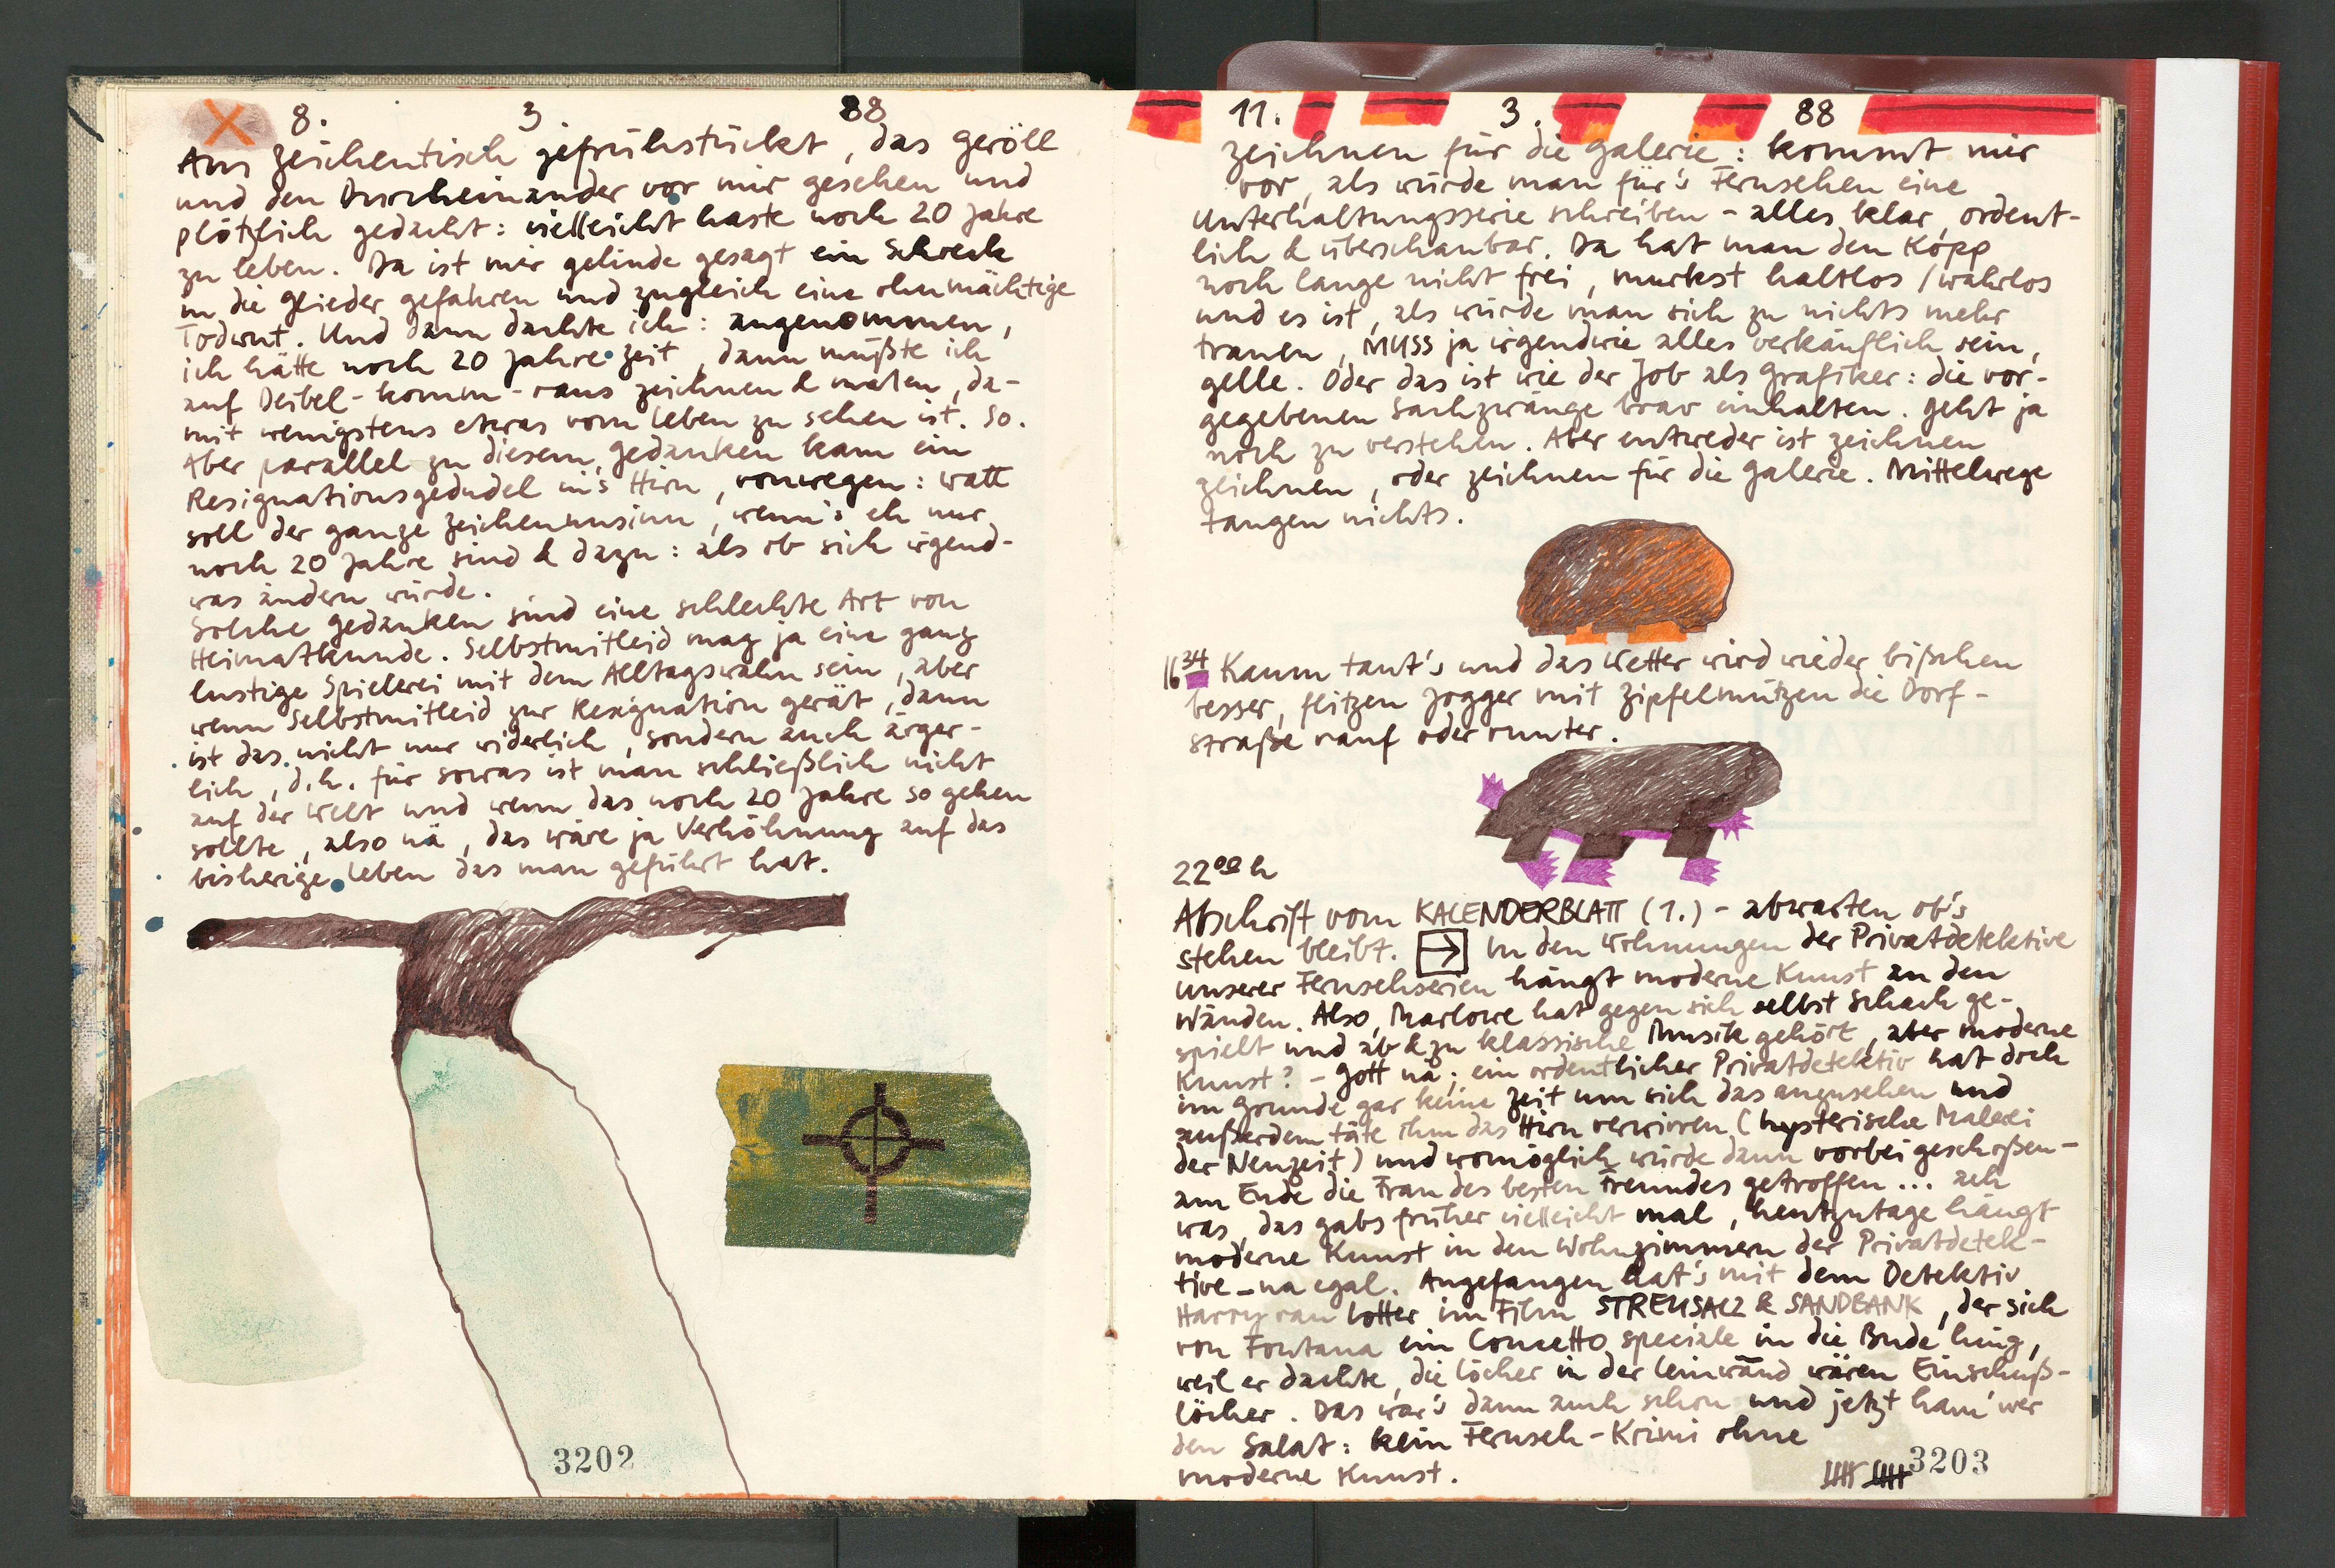 8. 3 88
Am Zeichentisch gefrühstückt, das Geröll
und den Durcheinander vor mir gesehen und
plötzlich gedacht: vielleicht haste noch 20 Jahre
zu leben. Da ist mir gelinde gesagt ein Schreck
in die Glieder gefahren und zugleich eine ohnmächtige
Todwut. Und dann dachte ich: angenommen,
ich hätte noch 20 Jahre Zeit, dann müßte ich
auf Deibel-komm-raus zeichnen & malen, da-
mit wenigstens etwas vom Leben zu sehen ist. So.
Aber parallel zu diesem Gedanken kam ein
Resignationsgedudel in's Hirn, vonwegen: watt
soll der ganze Zeichenunsinn, wenn's eh nur
noch 20 Jahre sind & dazu: als ob sich irgend-
was ändern würde.
Solche Gedanken sind eine schlechte Art von
Heimatkunde. Selbstmitleid mag ja eine ganz
lustige Spielerei mit dem Alltagswahn sein, aber
wenn Selbstmitleid zur Resignation gerät, dann
ist das nicht nur widerlich, sondern auch ärger-
lich, d.h. für sowas ist man schließlich nicht
auf der Welt und wenn das noch 20 Jahre so gehen
sollte, also nä, das wäre ja Verhöhnung auf das
bisherige Leben das man geführt hat.
3202
11. 3. 88
Zeichnen für die Galerie: kommt mir
vor, als würde man für's Fernsehen eine
Unterhaltungsserie schreiben - alles klar, ordent-
lich & überschaubar. Da hat man den Kopp
noch lange nicht frei, murkst haltlos / wahrlos
und es ist, als würde man sich zu nichts mehr
trauen, MUSS ja irgendwie alles verkäuflich sein,
gelle. Oder das ist wie der Job als Grafiker: die vor-
gegebenen Sachzwänge brav einhalten. Geht ja
noch zu verstehen. Aber entweder ist zeichnen
zeichnen, oder zeichnen für die Galerie. Mittelwege
taugen nichts.
16 34 Kaum taut's und das Wetter wird wieder bißchen
besser, flitzen Jogger mit Zipfelmützen die Dorf-
straße rauf oder runter.
22 00 h
Abschrift vom KALENDERBLATT (1.) - abwarten ob's
stehen bleibt. → In den Wohnungen der Privatdetektive
unserer Fernsehserien hängt moderne Kunst an den
Wänden. Also, Marlowe hat gegen sich selbst Schach ge-
spielt und ab & zu klassische Musik gehört, aber moderne
Kunst? - Gott nä; ein ordentlicher Privatdetektiv hat doch
im Grunde gar keine Zeit um sich das anzusehen und
außerdem täte ihm das Hirn verwirren (hysterische Malerei
der Neuzeit) und womöglich würde dann vorbei geschoßen -
am Ende die Frau des besten Freundes getroffen ... ach
was, das gabs früher vielleicht mal, heutzutage hängt
moderne Kunst in den Wohnzimmern der Privatdetek-
tive - na egal. Angefangen hat's mit dem Detektiv
Harry van Lotter im Film STREUSALZ & SANDBANK, der sich
von Fontana ein Concetto speziale in die Bude hing,
weil er dachte, die Löcher in der Leinwand wären Einschuß-
löcher. Das war's dann auch schon und jetzt ham' wer
den Salat: kein Fernseh-Krimi ohne
moderne Kunst.
3203